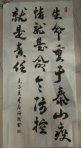 生命重于泰山疫
情就是命令防控
就是责任